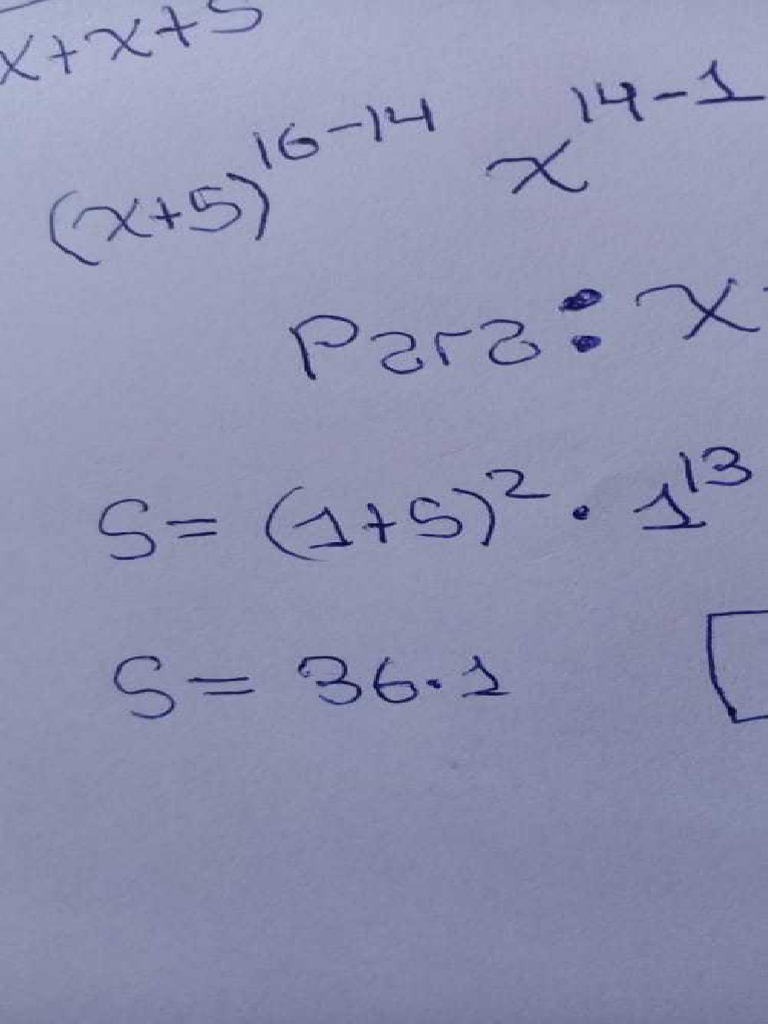 x+x+5
(x+5)^16-14 x^14-1
Para: x
S= (1+5)^2 . 1^13
S= 36.1